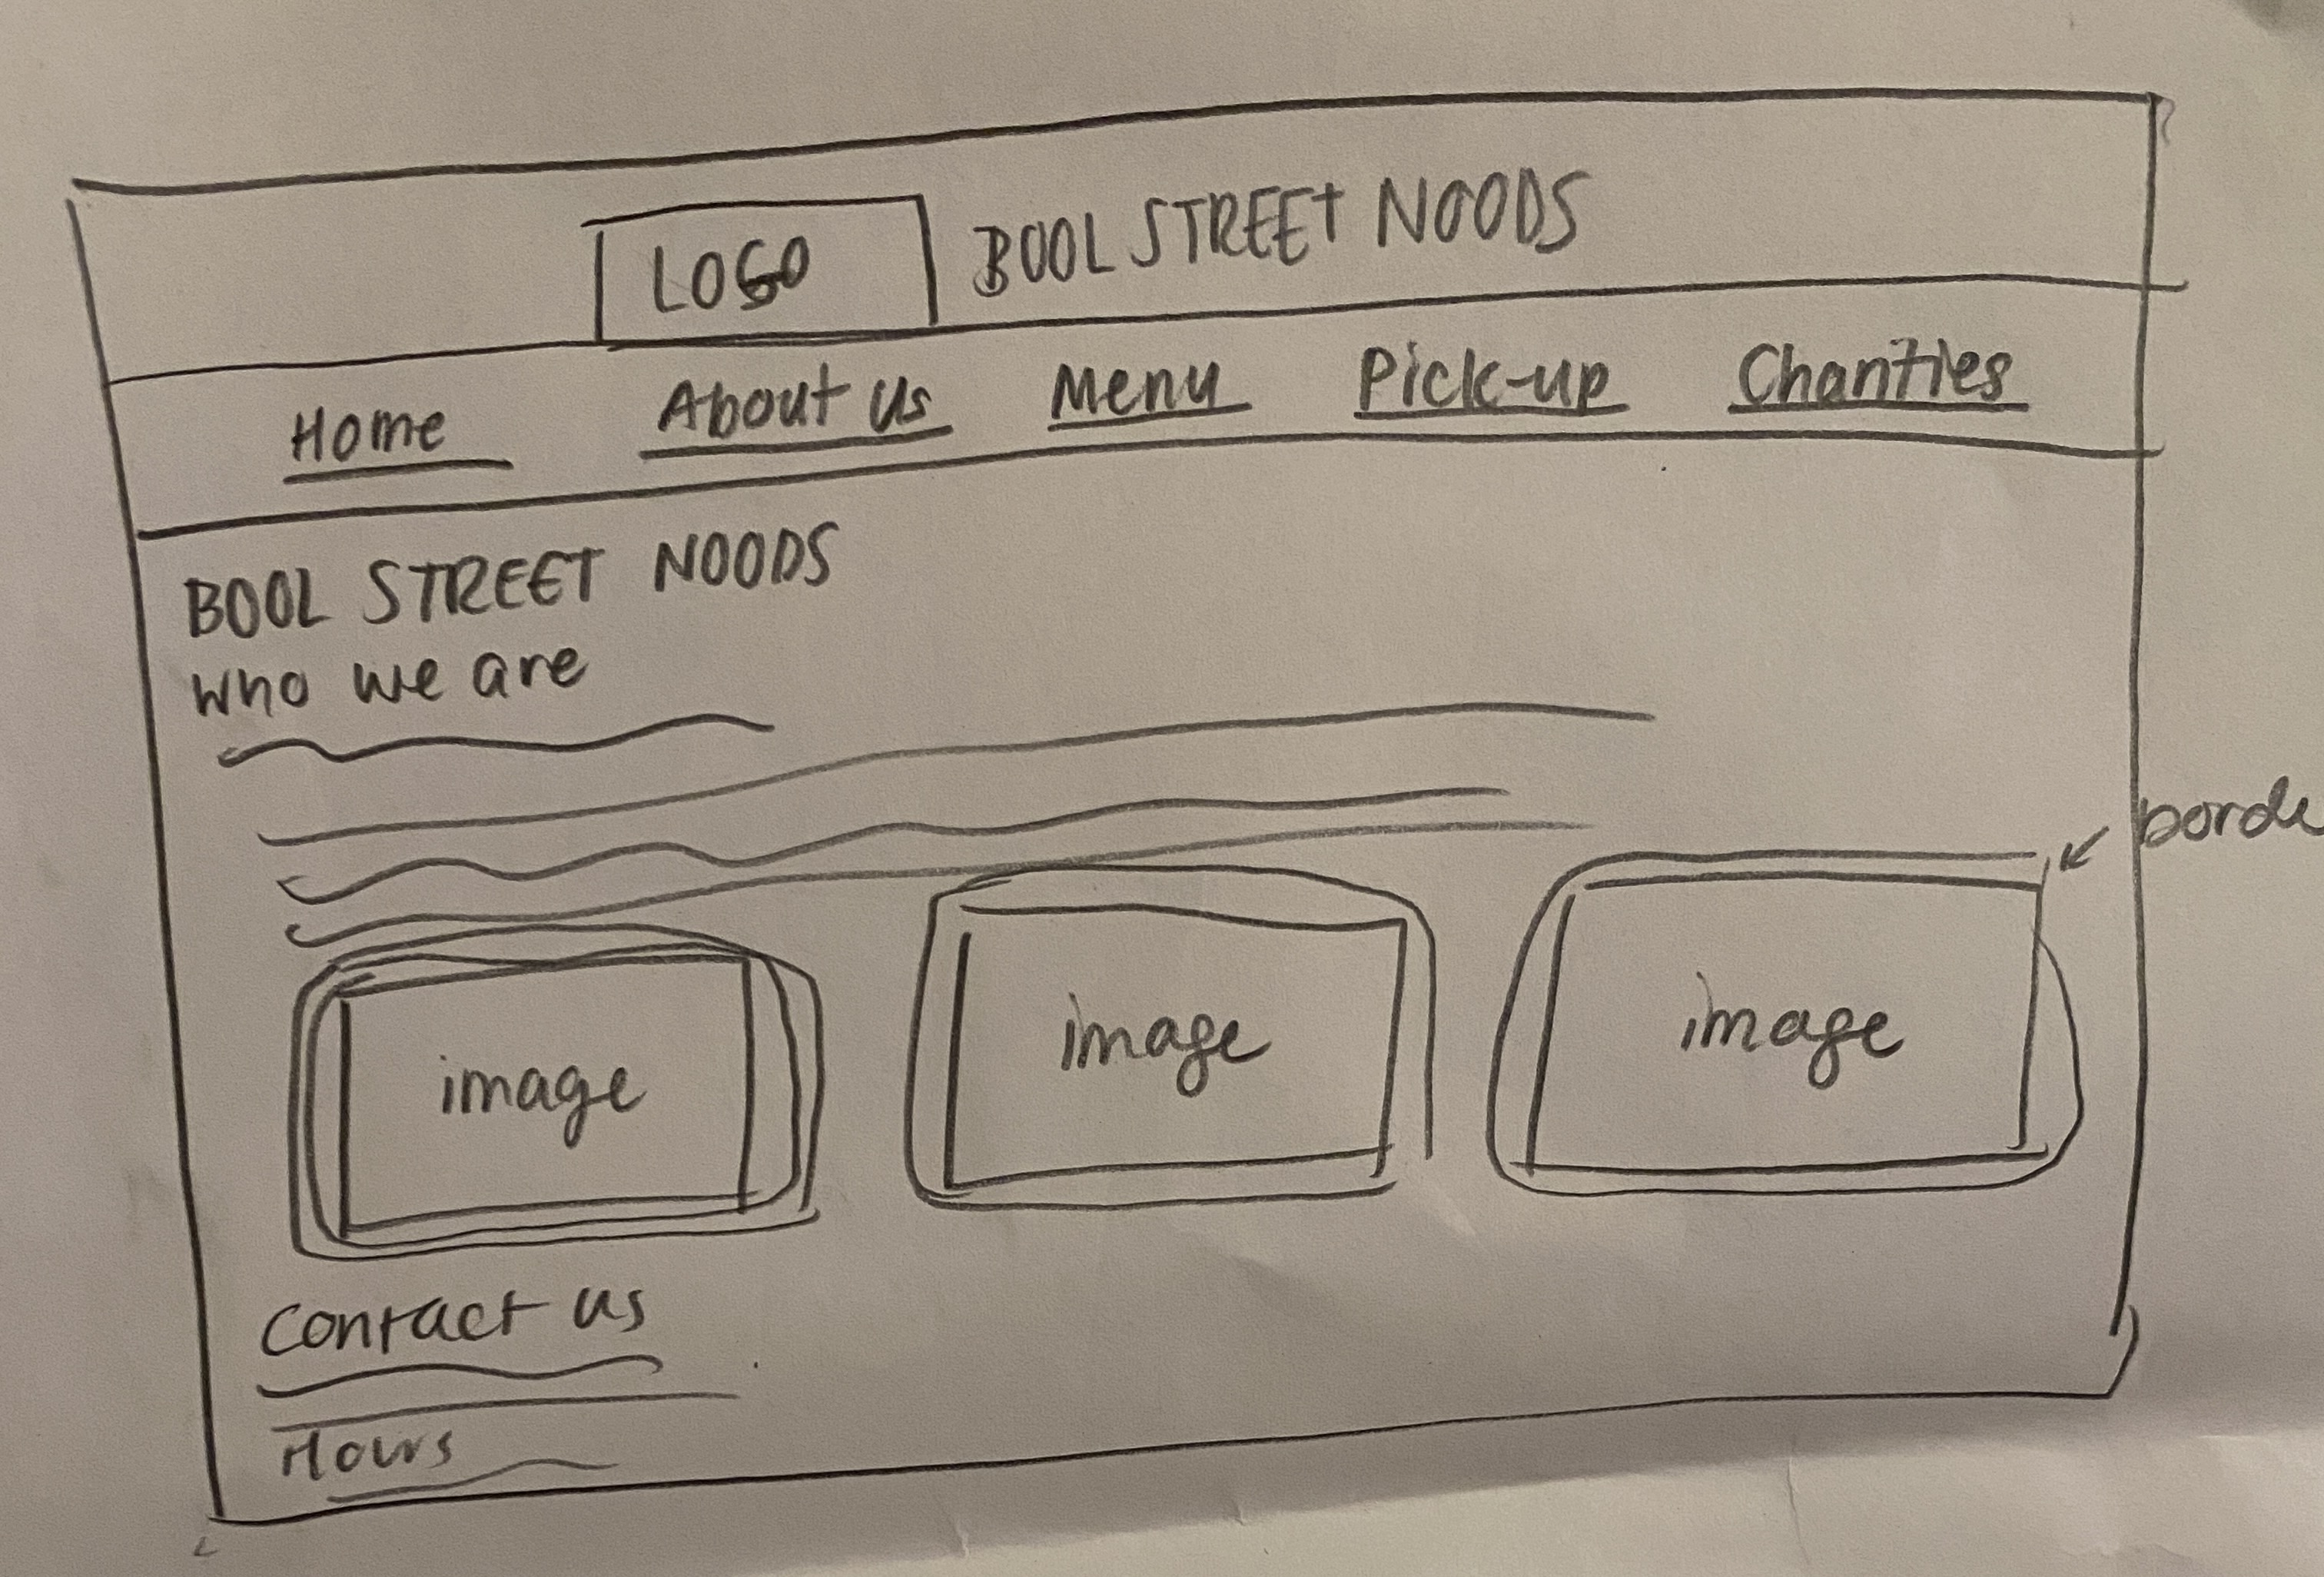 LOGO BOOL STREET NOODS
Home About us Menu Pick-up Charities
BOOL STREET NOODS
who we are
borde
image image image
Contact us
Hours